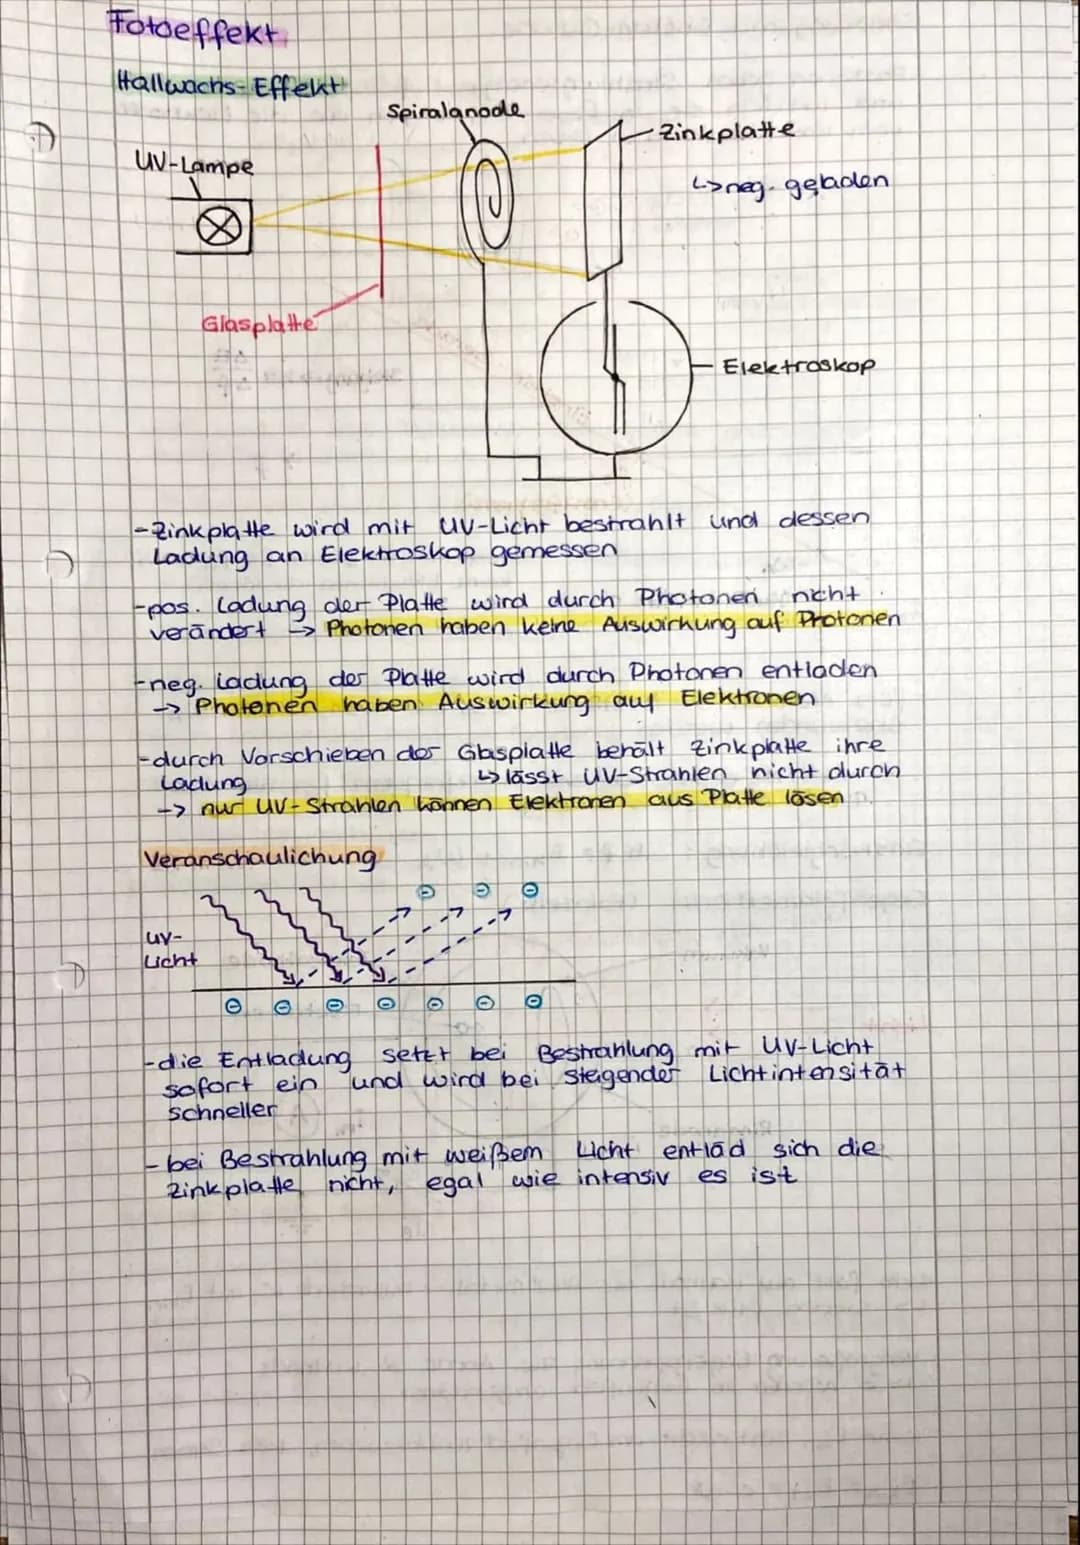 Fotoeffekt
Hallwachs-Effekt
Spiralanode
Zinkplatte
UV-Lampe
↳neg. geladen
Glasplatte
Elektroskop
-Zinkplatte wird mit UV-Licht bestrahlt und dessen
Ladung an Elektroskop gemessen
-pos. Ladung der Platte wird durch Photonen nicht
verändert → Photonen haben keine Auswirkung auf Protonen
-neg. Ladung der Platte wird durch Photonen entladen
→ Photonen haben Auswirkung auf Elektronen
-durch Vorschieben der Glasplatte behält Zinkplatte ihre
Ladung ↳lässt UV-Strahlen nicht durch
→ nur UV-Strahlen können Elektronen aus Platte lösen
Veranschaulichung
UV-
Licht
-die Entladung setzt bei Bestrahlung mit UV-Licht
sofort ein und wird bei steigender Lichtintensität
schneller
-bei Bestrahlung mit weißem Licht entläd sich die
Zinkplatte nicht, egal wie intensiv es ist